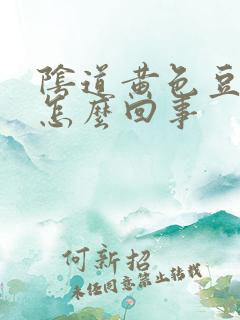 陰道黃色豆
怎麼回事
何新招
未经同意禁止转载